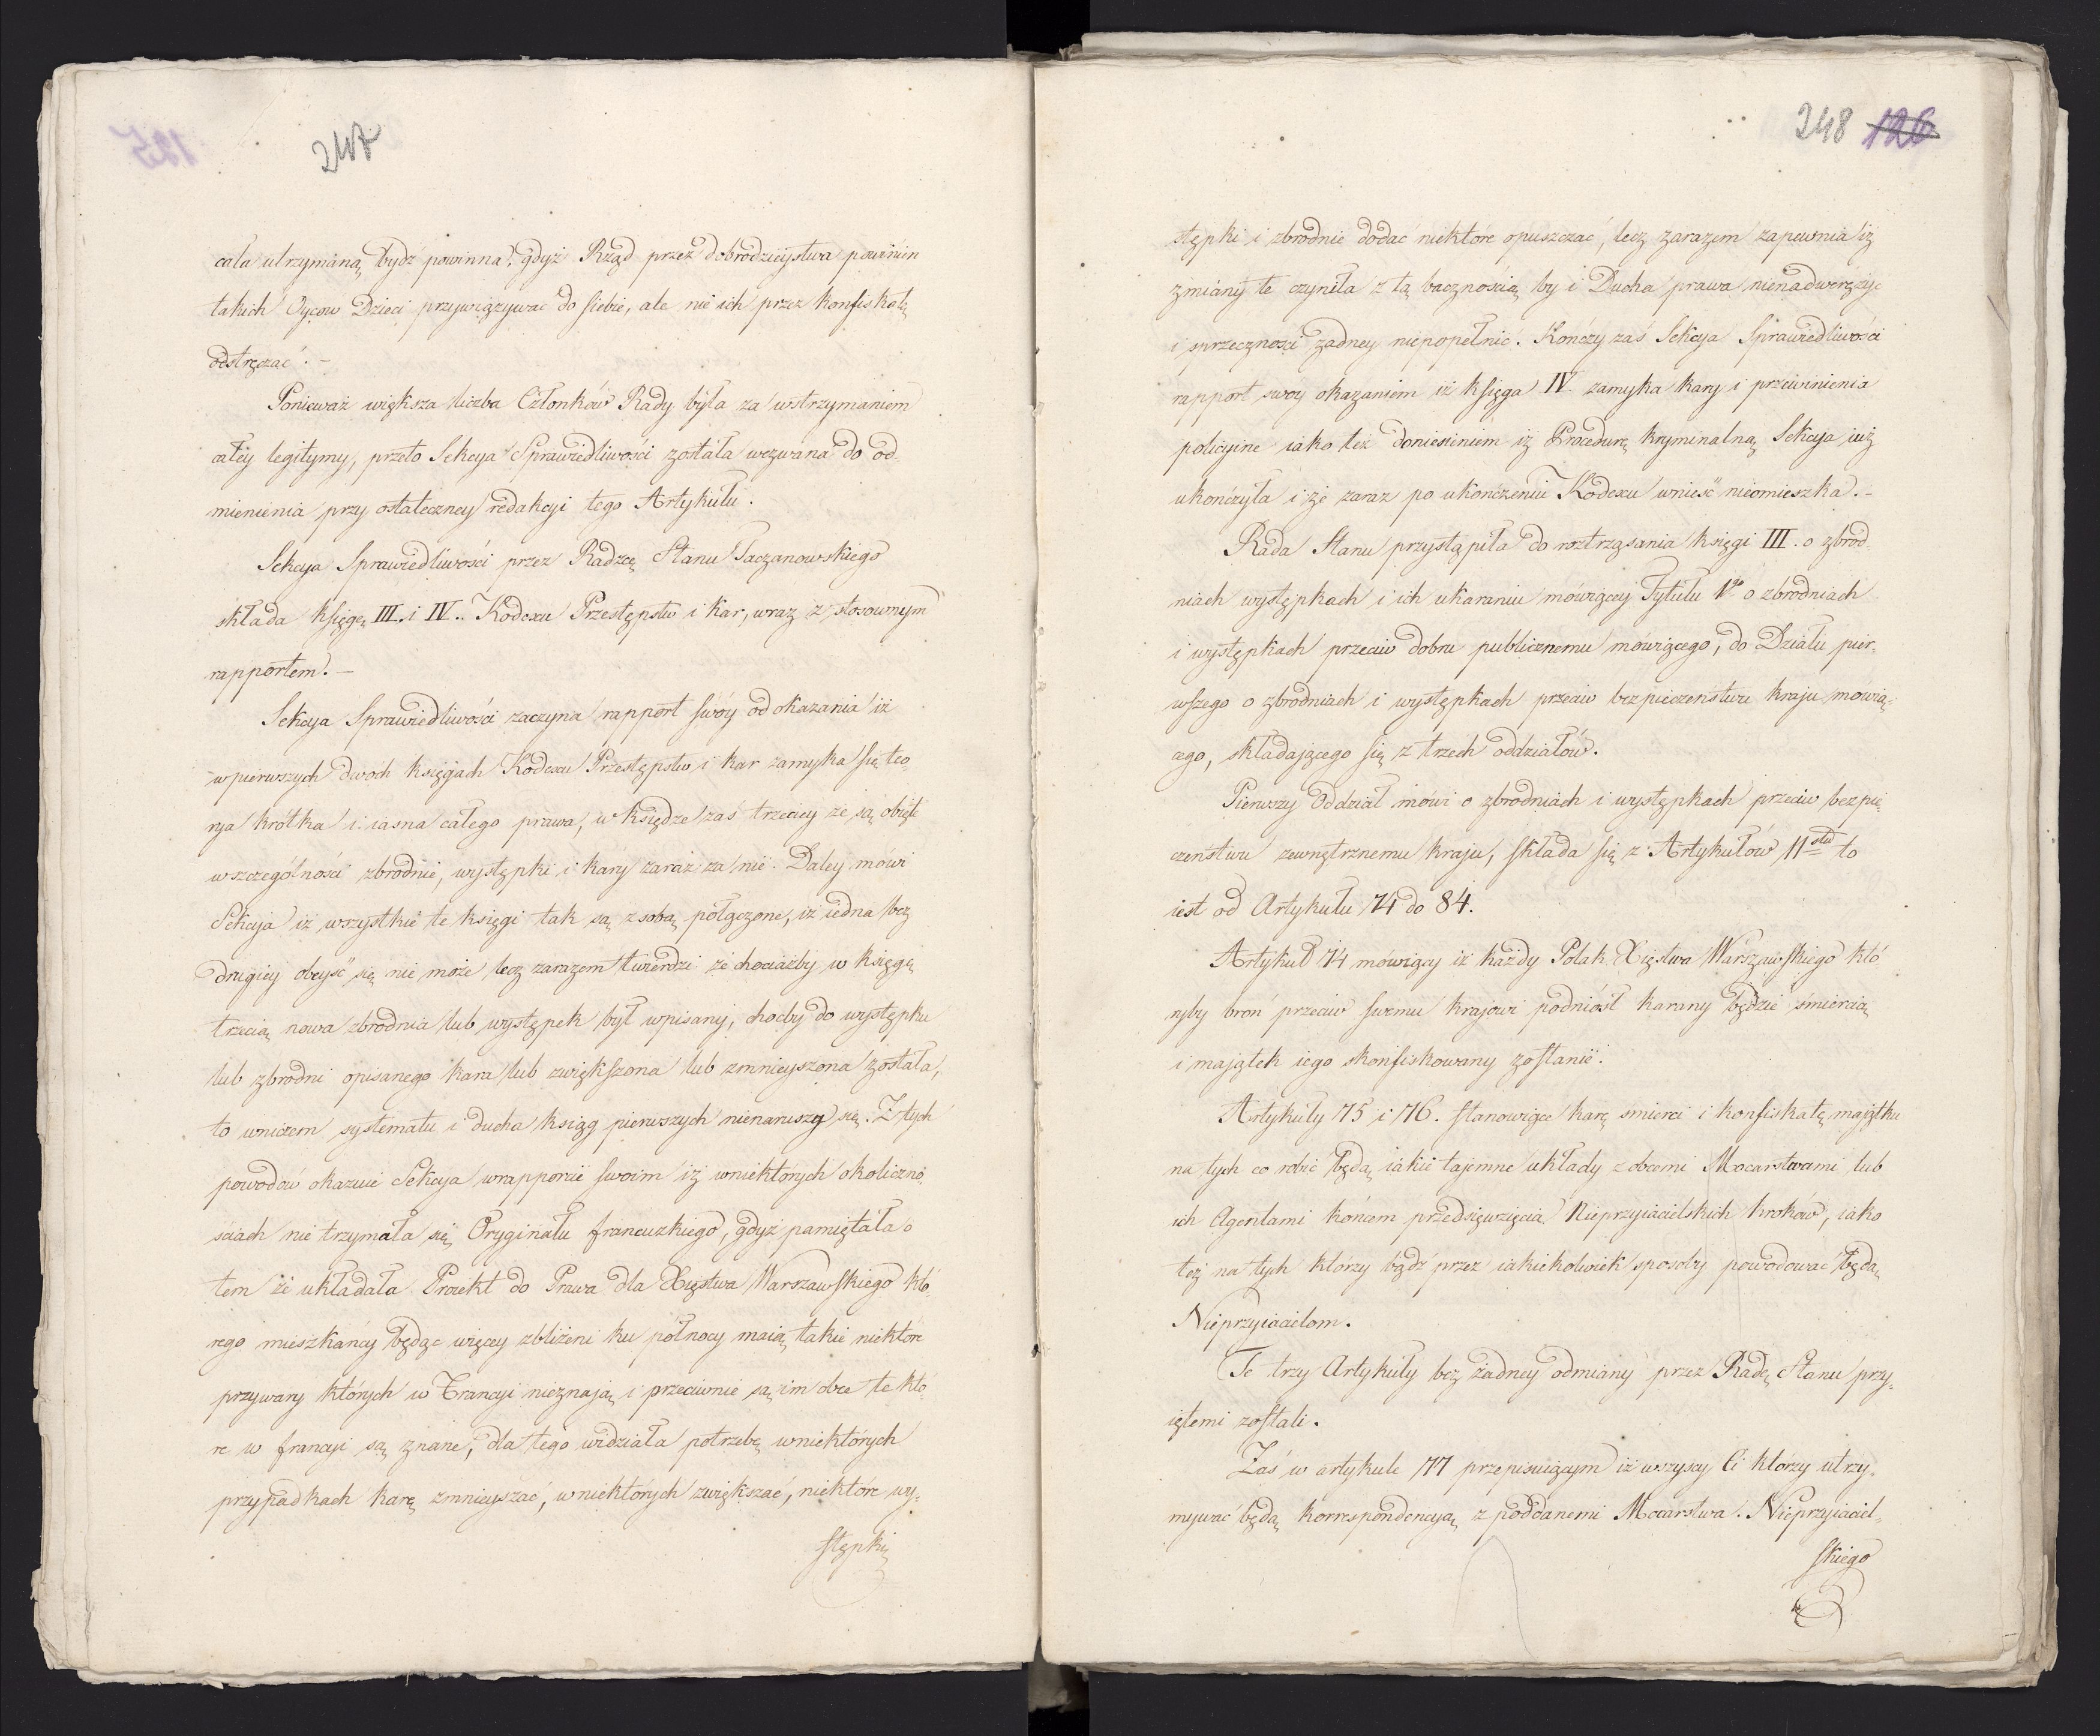 247
cała utrzymaną bydź powinna, gdyż Rząd przez dobrodzieystwa powinien
takich Oyców Dzieci przywiązywać do siebie, ale nie ich przez konfiskatę
odstręczać. –
Ponieważ większa liczba Członków Rady była za wstrzymaniem
całéy legitymy, przeto Sekcya Sprawiedliwości została wezwana do od-
mienienia przy ostateczney redakcyi tego Artykułu.
Sekcya Sprawiedliwości przez Radzcę Stanu Taczanowskiego
składa księgę III. i IV. Kodexu Przestępstw i Kar, wraz z stosownym
rapportem. –
Sekcya Sprawiedliwości zaczyna rapport swóy od okazania iż
w pierwszych dwóch księgach Kodexu Przestępstw i kar zamyka się teo-
rya krótka i iasna całego prawa, w księdze zaś trzeciey że są obięte
w szczególności zbrodnie, występki i kary zaraz za nie. Daley mówi
Sekcya iż wszystkie te księgi tak są z sobą połączone, iż iedna bez
drugiey obeyść się nie może, lecz zarazem twierdzi że chociażby w księgę
trzecią nowa zbrodnia lub występek był wpisany, choćby do występku
lub zbrodni opisanego kara lub zwiększona lub zmnieyszona została,
to wniczem systematu i ducha ksiąg pierwszych nienaruszy się. Z tych
powodów okazuie Sekcya wrapporcie swoim iż wniektórych okoliczno-
ściach nie trzymała się Oryginału francuzkiego, gdyż pamiętała o
tem że układała Proiekt do Prawa dla Xięstwa Warszawskiego któ-
rego mieszkańcy będąc więcey zbliżeni ku północy maią takie niektóre
przywary których w Francyi nieznają i przeciwnie są im obce te któ-
re w francyi są znane, dla tego widziała potrzebę wniektórych
przypadkach karę zmnieyszać, wniektórych zwiększać, niektóre wy-
stępki
248 126
stępki i zbrodnie dodać niektóre opuszczać, lecz zarazem zapewnia iż
zmiany te czyniła z tą bacznością by i Ducha prawa nienadwerężyć
i sprzeczności żadney niepopełnić. Kończy zaś Sekcya Sprawiedliwości
rapport swoy okazaniem iż księga IV zamyka kary i przewinienia
policyine iako też doniesieniem iż Procedurę kryminalną Sekcya iuż
ukończyła i że zaraz po ukończeniu Kodexu wnieść nieomieszka. –
Rada Stanu przystąpiła do roztrząsania księgi III. o zbrod-
niach występkach i ich ukaraniu mówiącey Tytułu 1go o zbrodniach
i występkach przeciw dobru publicznemu mówiącego, do Działu pier-
wszego o zbrodniach i występkach przeciw bezpieczeństwu kraju mówią-
cego, składającego się z trzech oddziałów.
Pierwszy Oddział mówi o zbrodniach i występkach przeciw bezpie-
czeństwu zewnętrznemu kraju, składa się z Artykułów 11stu to
iest od Artykułu 74 do 84.
Artykuł 74 mówiący iż każdy Polak Xięstwa Warszawskiego któ
ryby broń przeciw swemu krajowi podniósł karany będzie śmiercią
i majątek iego skonfiskowany zostanie.
Artykuły 75 i 76. stanowiące karę śmierci i konfiskatę majątku
na tych co robić będą iakie tajemne układy z obcemi Mocarstwami lub
ich Agentami końcem przedsięwzięcia Nieprzyiacielskich kroków, iako
też na tych którzy bądź przez iakiekolwiek sposoby powodować będą
Nieprzyiacielom.
Te trzy Artykuły bez żadney odmiany przez Radę Stanu przy-
iętemi zostali.
Zaś w artykule 77 przepisuiącym iż wszyscy Ci którzy utrzy-
mywać będą korrespondencyą z poddanemi Mocarstwa Nieprzyiaciel-
skiego